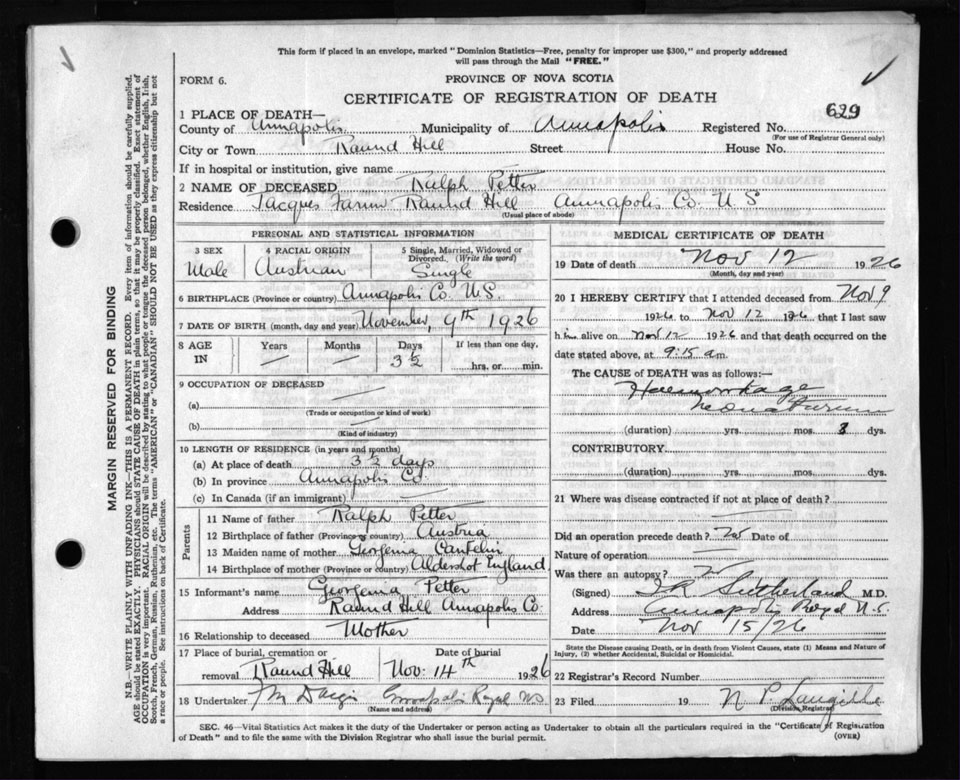 This form if placed in an envelope, marked "Dominion Statistics—Free, penalty for improper use $300," and properly addressed
will pass through the Mail "FREE."
FORM 6.
PROVINCE OF NOVA SCOTIA
CERTIFICATE OF REGISTRATION OF DEATH
1 PLACE OF DEATH—
County of Annapolis Municipality of Annapolis Registered No. 629
(For use of Registrar General only)
City or Town Round Hill Street House No.
If in hospital or institution, give name
2 NAME OF DECEASED Ralph Petter
Residence Jacques Farm Round Hill Annapolis Co. N S
(Usual place of abode)
PERSONAL AND STATISTICAL INFORMATION
3 SEX 4 RACIAL ORIGIN 5 Single, Married, Widowed or
Divorced. (Write the word)
Male Austrian Single
6 BIRTHPLACE (Province or country) Annapolis Co. N.S.
7 DATE OF BIRTH (month, day and year) November, 9th 1926
8 AGE Years Months Days If less than one day,
IN — — 3½ hrs. or min.
9 OCCUPATION OF DECEASED —
(a)
(Trade or occupation or kind of work)
(b) —
(Kind of industry)
10 LENGTH OF RESIDENCE (in years and months)
(a) At place of death 3½ days
(b) In province Annapolis Co.
(c) In Canada (if an immigrant) —
Parents
11 Name of father Ralph Petter
12 Birthplace of father (Province or country) Austria
13 Maiden name of mother Georgenia
14 Birthplace of mother (Province or country) Aldershot England
15 Informant's name Georgenia Petter
Address Round Hill Annapolis Co.
16 Relationship to deceased Mother
17 Place of burial, cremation or Date of burial
removal Round Hill Nov: 14th 1926
18 Undertaker Annapolis Royal NS
(Name and address)
MEDICAL CERTIFICATE OF DEATH
19 Date of death Nov 12 1926
(Month, day and year)
20 I HEREBY CERTIFY that I attended deceased from Nov 9
1926 to Nov 12 1926 that I last saw
him alive on Nov 12 1926 and that death occurred on the
date stated above, at 9:15 a.m.
The CAUSE of DEATH was as follows:—
Haemorrhage
Neonatorum
(duration) yrs. mos. 3 dys.
CONTRIBUTORY.
(duration) yrs. mos. dys.
21 Where was disease contracted if not at place of death?
Did an operation precede death? No Date of
Nature of operation —
Was there an autopsy? No
(Signed) Sutherland M.D.
Address Annapolis Royal N.S.
Date Nov 15/26
State the Disease causing Death, or in death from Violent Causes, state (1) Means and Nature of
Injury, (2) whether Accidental, Suicidal or Homicidal.
22 Registrar's Record Number
23 Filed 19 N P Langille
(Division Registrar)
SEC. 46—Vital Statistics Act makes it the duty of the Undertaker or person acting as Undertaker to obtain all the particulars required in the "Certificate of Registration
of Death" and to file the same with the Division Registrar who shall issue the burial permit.
(OVER)
MARGIN RESERVED FOR BINDING
N.B.—WRITE PLAINLY WITH UNFADING INK—THIS IS A PERMANENT RECORD. Every item of information should be carefully supplied.
AGE should be stated EXACTLY. PHYSICIANS should STATE CAUSE OF DEATH in plain terms, so that it may be properly classified. Exact statement of
OCCUPATION is very important. RACIAL ORIGIN will be described by stating to what people or tongue the deceased person belonged, whether English, Irish,
Scotch, French, German, Russian, Ruthenian, etc. The terms "AMERICAN" or "CANADIAN" SHOULD NOT BE USED as they express citizenship but not
a race or people. See instructions on back of Certificate.